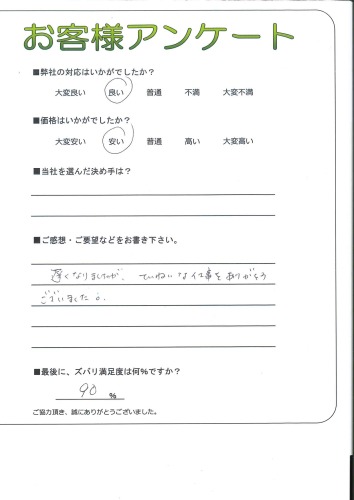 お客様アンケート
■弊社の対応はいかがでしたか？
大変良い 良い 普通 不満 大変不満
■価格はいかがでしたか？
大変安い 安い 普通 高い 大変高い
■当社を選んだ決め手は？
■ご感想・ご要望などをお書き下さい。
遅くなりましたが、ていねいな仕事をありがとう
ございました。
■最後に、ズバリ満足度は何％ですか？
90 ％
ご協力頂き、誠にありがとうございました。